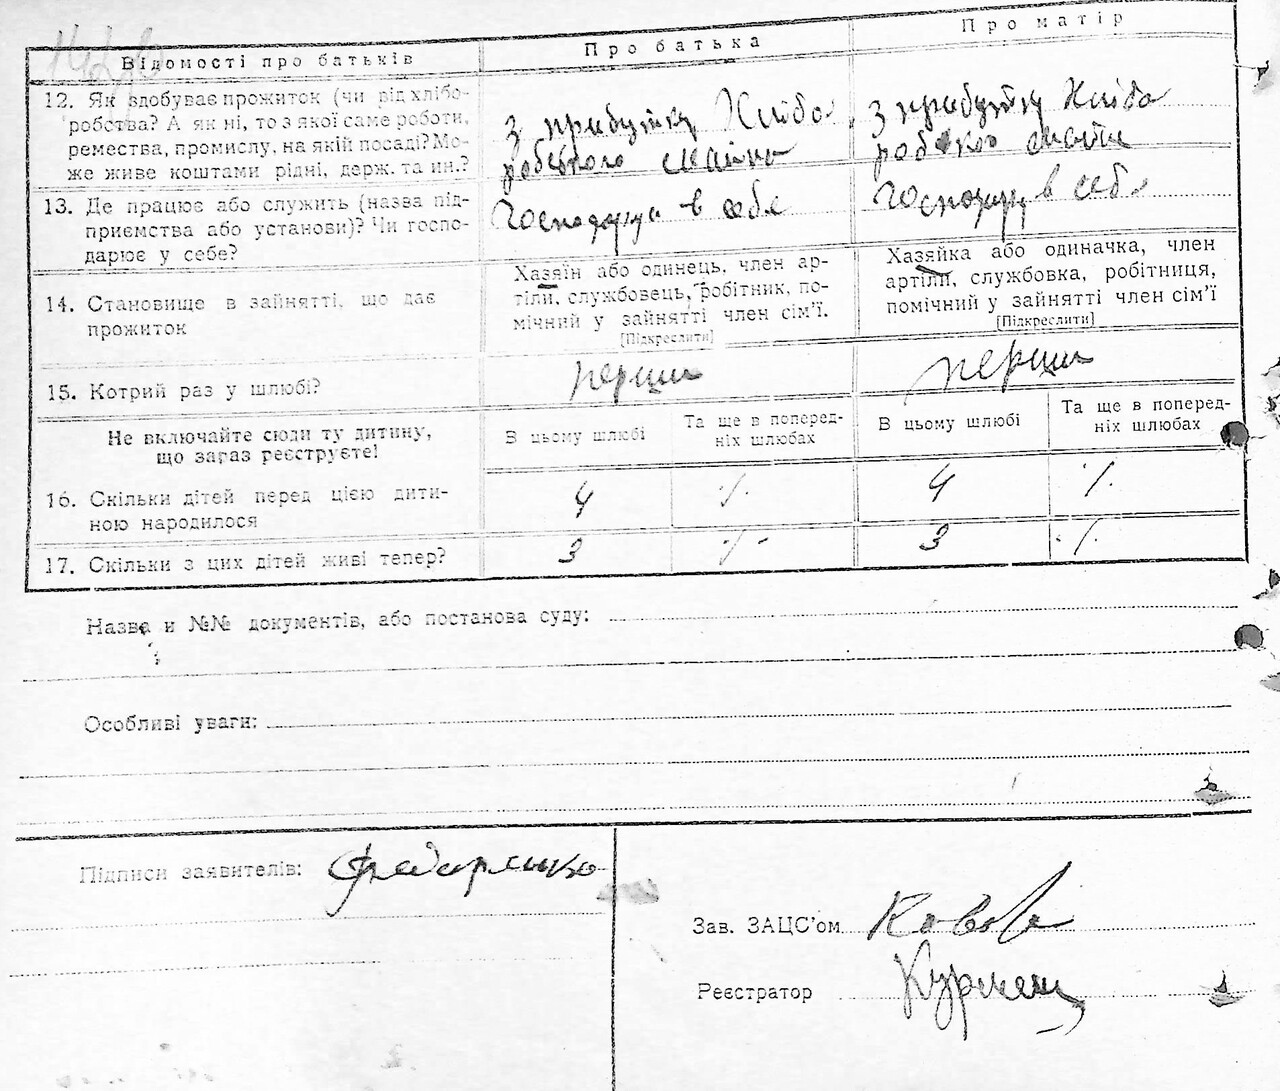 Відомості про батьків
Про батька
Про матір
12. Як здобуває прожиток (чи від хлібо-
робства? А як ні, то з якої саме роботи,
ремества, промислу, на якій посаді? Мо-
же живе коштами рідні, держ. та ин.?
з прибутку Хлібо
робського майна
з прибутку Хлібо
робського майна
13. Де працює або служить (назва під-
приємства або установи)? Чи госпо-
дарює у себе?
Господарує в себе
Господарує в себе
14. Становище в зайнятті, що дає
прожиток
Хазяїн або одинець, член ар-
тіли, службовець, робітник, по-
мічний у зайнятті член сім'ї.
[Підкреслити]
Хазяйка або одиначка, член
артіли, службовка, робітниця,
помічний у зайнятті член сім'ї
[Підкреслити]
15. Котрий раз у шлюбі?
перший
перший
Не включайте сюди ту дитину,
що зараз реєструєте!
В цьому шлюбі
Та ще в поперед-
ніх шлюбах
В цьому шлюбі
Та ще в поперед-
ніх шлюбах
16. Скільки дітей перед цією дити-
ною народилося
4
·/.
4
·/.
17. Скільки з цих дітей живі тепер?
3
·/.
3
·/.
Назва и №№ документів, або постанова суду:
Особливі уваги:
Підписи заявителів: Федоренко
Зав. ЗАЦС'ом
Реєстратор